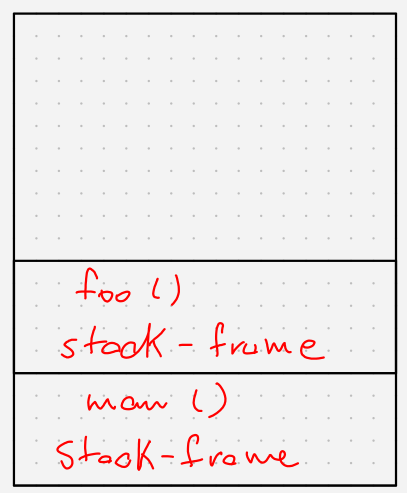 foo ()
stack-frame
main ()
stack-frame